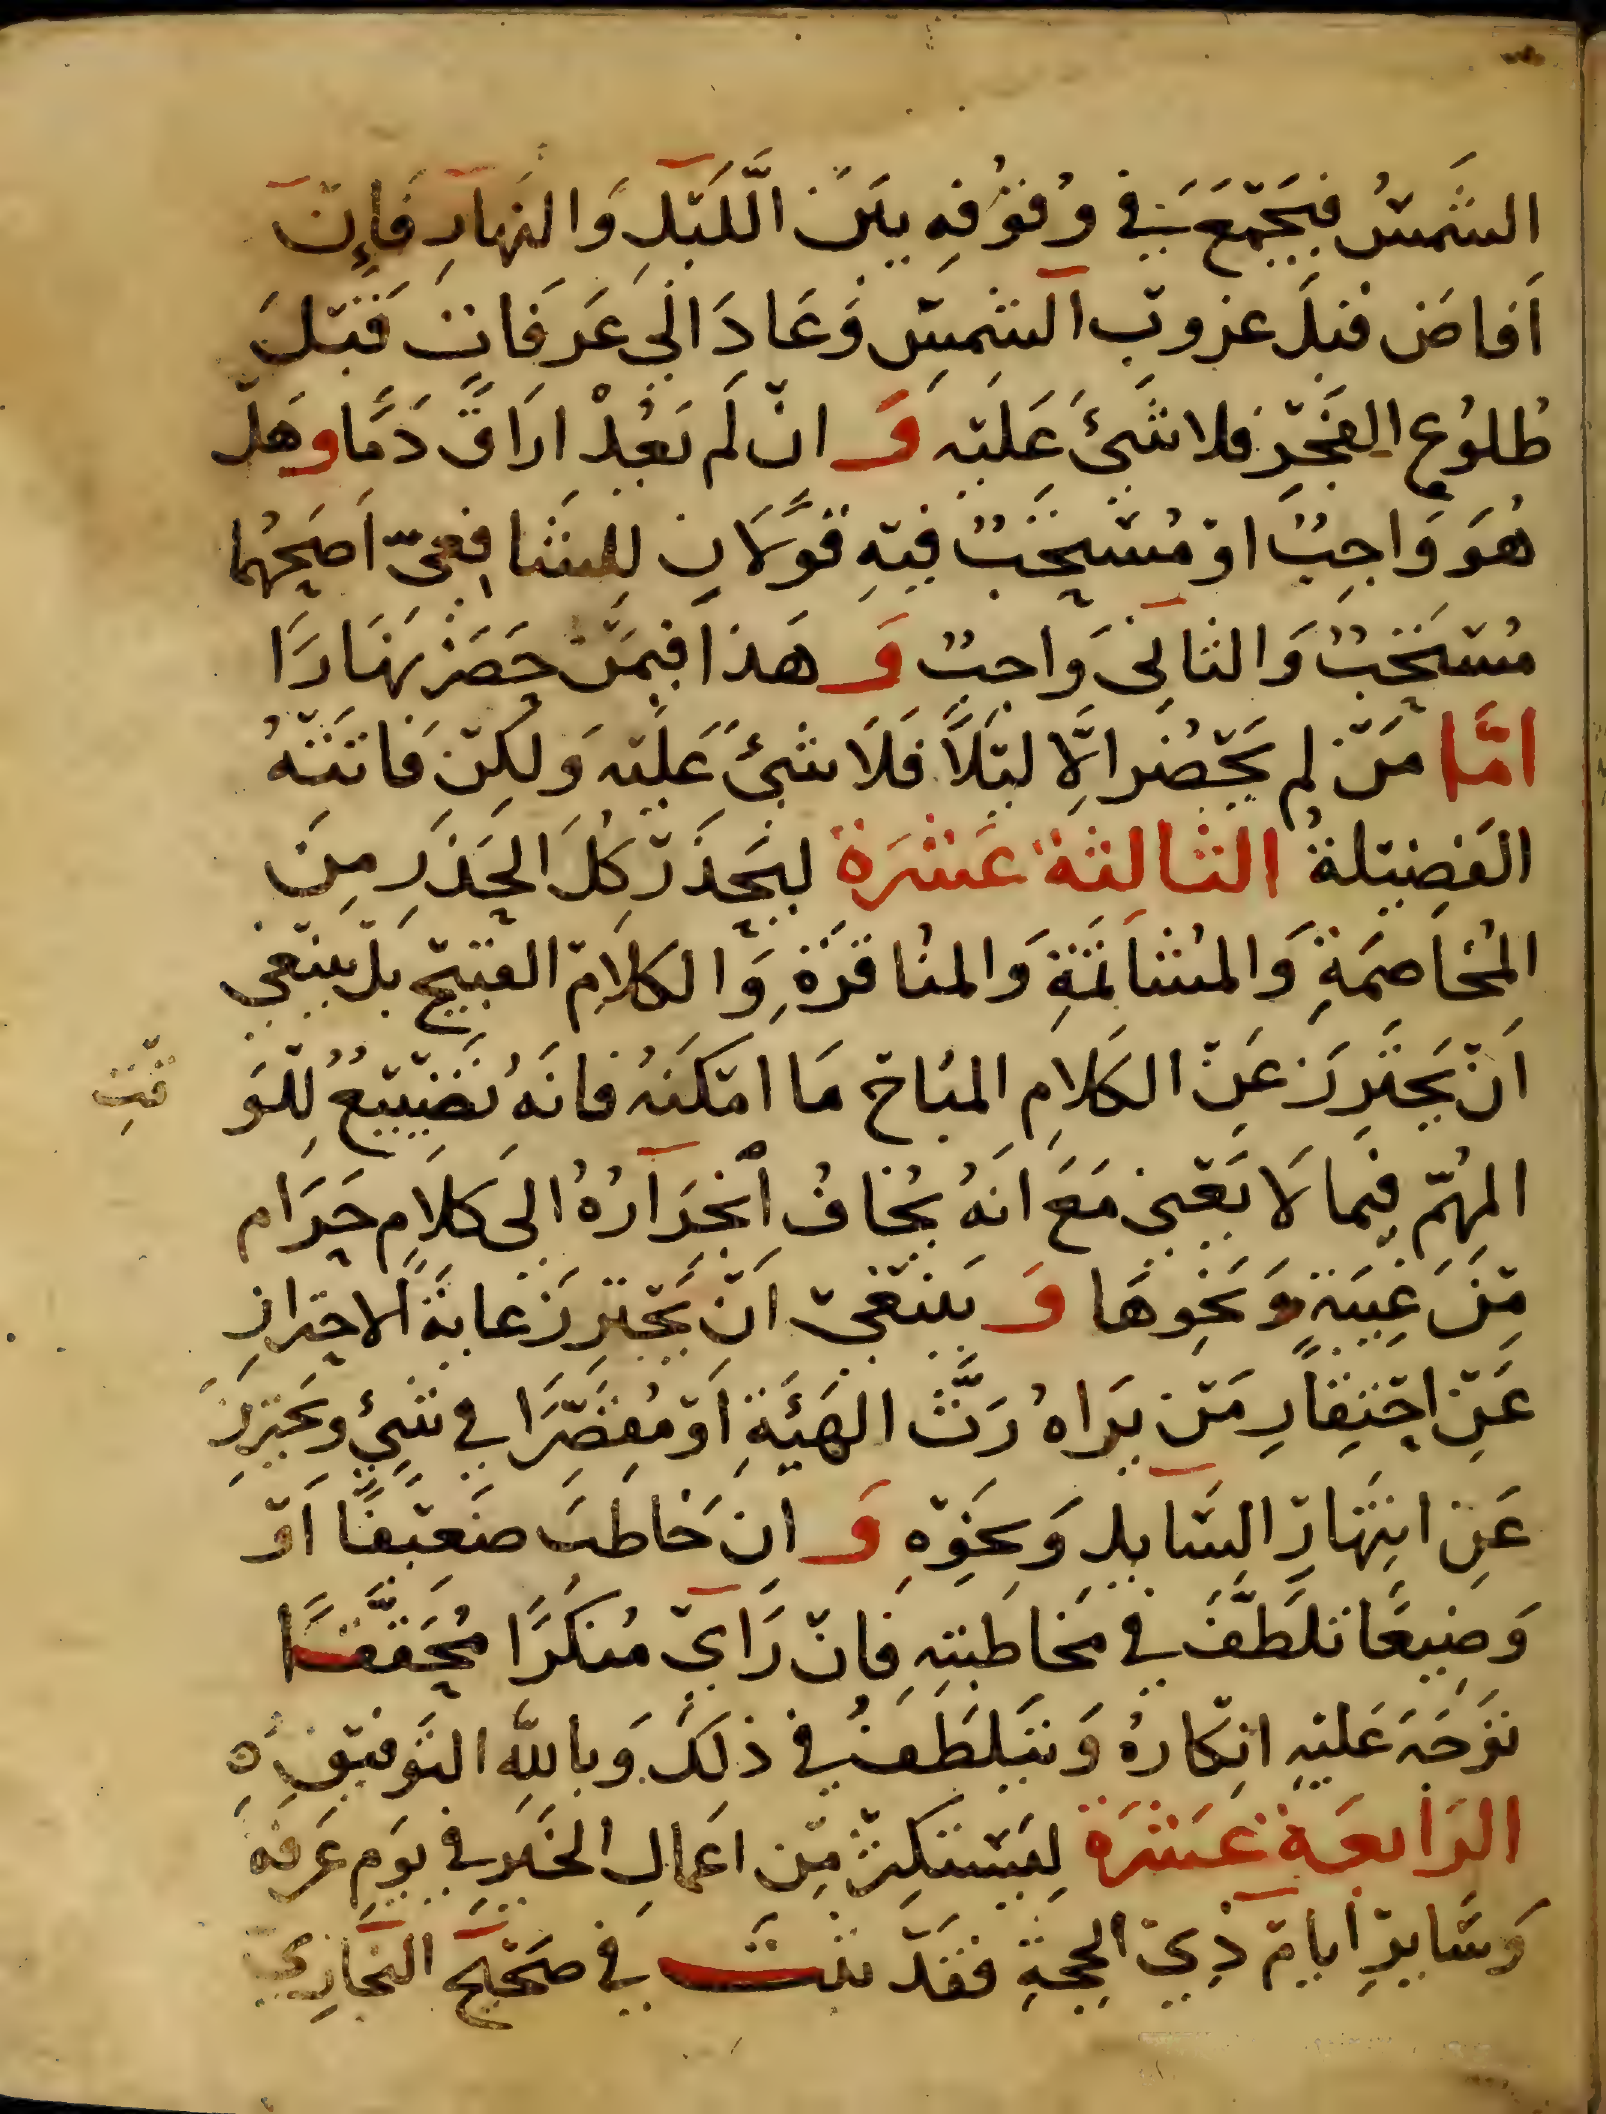 الشَّمسُ فيَجْمَعَ في وُقوُفِهِ بيَنَ الَّليْلِ وَالنهارِ فَإِنْ
اَفاضَ قبْلَ غروبِ الشمسِ وَعَادَ الَى عَرَفَاتٍ قَبْلَ
طُلوُعِ الفَجْرِ فلا شَيْءَ عَلَيْهِ وَ انْ لَم يَعُدْ ارَاقَ دَمًا وهَلْ
هُوَ وَاجِبٌ اوْ مُسْتَحَبٌ فيْهِ قَوْلَانِ لِلشَافِعيّ اَصَحُهُما
مُسْتَحَبٌ وَالثانِى وَاجبٌ وَ هَذا فيمَنْ حَضَرَ نهَارَا
امَّا مَنْ لم يَحْضُر الَّا ليْلاً فَلَا شئَ عَليْهِ وَلَكِنْ فَاتَتْهُ
الفَضِيْلةُ الثالثة عَشرَة ليَحْذَرْ كُلَ الحَذَرِ مِنَ
المُخَاصَمَةِ وَالمُشَاتَمَةِ وَالمُنافَرَةِ وَالكلَامِ القبيْحِ بلْ ينبَغي
اَنْ يَحْتَرِزَ عَنْ الكَلامِ المبُاحْ مَا امْكَنَهُ فانَهُ تَضْيْيعٌ لِلْوَ
قْتِ
المهُمّ فيما لَا يَعْنى مَعَ انَهُ يُخافُ اْنجِرَارُهُ الى كَلَامٍ حَرَام
مِّنَ غِيبَةٍ وَنَحْوِهَا وَ يَنْبَغيْ انْ يَحْتَرِزَ غايةَ الاحْترازِ
عَنِْ احْتِقَارِ مَنْ يرَاهُ رَثَّ الهَيْئَةِ اَوْ مُقَصِّرَا في شئٍ ويحَترِزَ
عَنِ انتِهَارِ السَّايلِ وَنحَوِهِ وَ انِ خَاطبَ ضَعيْفًا اَوْ
وَضِيعًا تلَطَّفَ في مخَاطبَتهِ فانْ رَايْ مُنكَرًا مُحَقَّقًا
توَجَهَ عَليْهِ انكارهُ وَيَتَلطَفُ في ذلكَ وَباللهِ التَوفيْقِ ه
الرَابعَة عَشرَة لِيَسْتكثِرْ مِّن اعمالِ الخَيْرِ في يوَمِ عَرفةَ
وَسَّايرِ ايامْ ذِيْ الحِجةِ فقَدْ ثبتَ في صَحْيحِ البخَاريْ